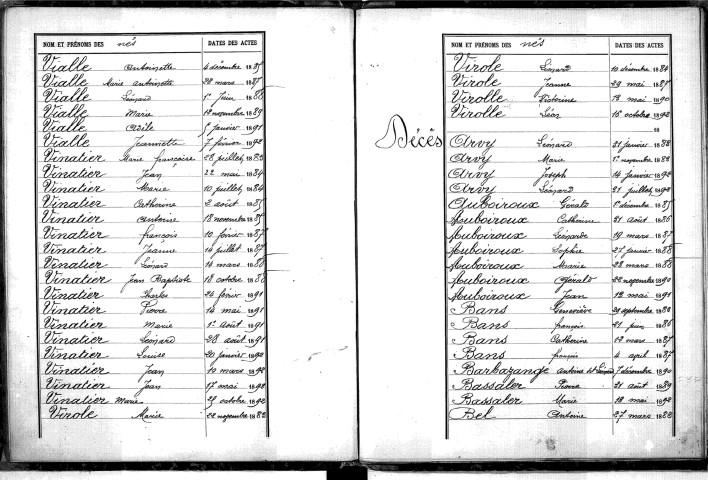 NOM ET PRÉNOMS DES nés DATES DES ACTES
Vialle Antoinette 4 décembre 1885
Vialle Marie Antoinette 22 mars 1887
Vialle Léonard 1er Juin 1888
Vialle Marie 17 novembre 1889
Vialle Adèle janvier 1891
Vialle Jeannette 7 février 1892
Vinatier Marie françoise 28 juillet 1883
Vinatier Jean 22 mai 1884
Vinatier Marie 10 juillet 1884
Vinatier Catherine 2 août 1885
Vinatier Antoine 18 novembre 1885
Vinatier françois 10 février 1887
Vinatier Jeanne 14 juillet 1887
Vinatier Léonard 14 mars 1888
Vinatier Jean Baptiste 18 octobre 1888
Vinatier Charles 24 février 1891
Vinatier Pierre 14 mai 1891
Vinatier Marie 1er août 1891
Vinatier Léonard 28 août 1891
Vinatier Louise 20 janvier 1892
Vinatier Jean 10 mars 1892
Vinatier Jean 17 mai 1892
Vinatier Marie 25 octobre 1892
Virole Marie 22 novembre 1882
NOM ET PRÉNOMS DES nés DATES DES ACTES
Virole Léonard 10 décembre 1884
Virole Jeanne 29 mai 1887
Virolle Victorine 13 mai 1890
Virolle Léon 16 octobre 1892
18
Décés
Arvy Léonard 21 janvier 1888
Arvy Marie 1er novembre 1888
Arvy Joseph 14 janvier 1892
Arvy Léonard 21 juillet 1892
Auboiroux Gérald 1er décembre 1885
Auboiroux Catherine 21 août 1886
Auboiroux Léonarde 19 mars 1887
Auboiroux Sophie 27 janvier 1888
Auboiroux Marie 28 mars 1888
Auboiroux Gérald 22 novembre 1890
Auboiroux Jean 12 mai 1891
Bans Geneviève 29 septembre 1883
Bans françois 21 juin 1886
Bans Catherine 17 mars 1887
Bans françois 4 avril 1887
Barbazange Antoine dit Léonard 7 décembre 1890
Bassaler Pierre 21 août 1889
Bassaler Marie 18 mai 1892
Bel Antoine 27 mars 1883